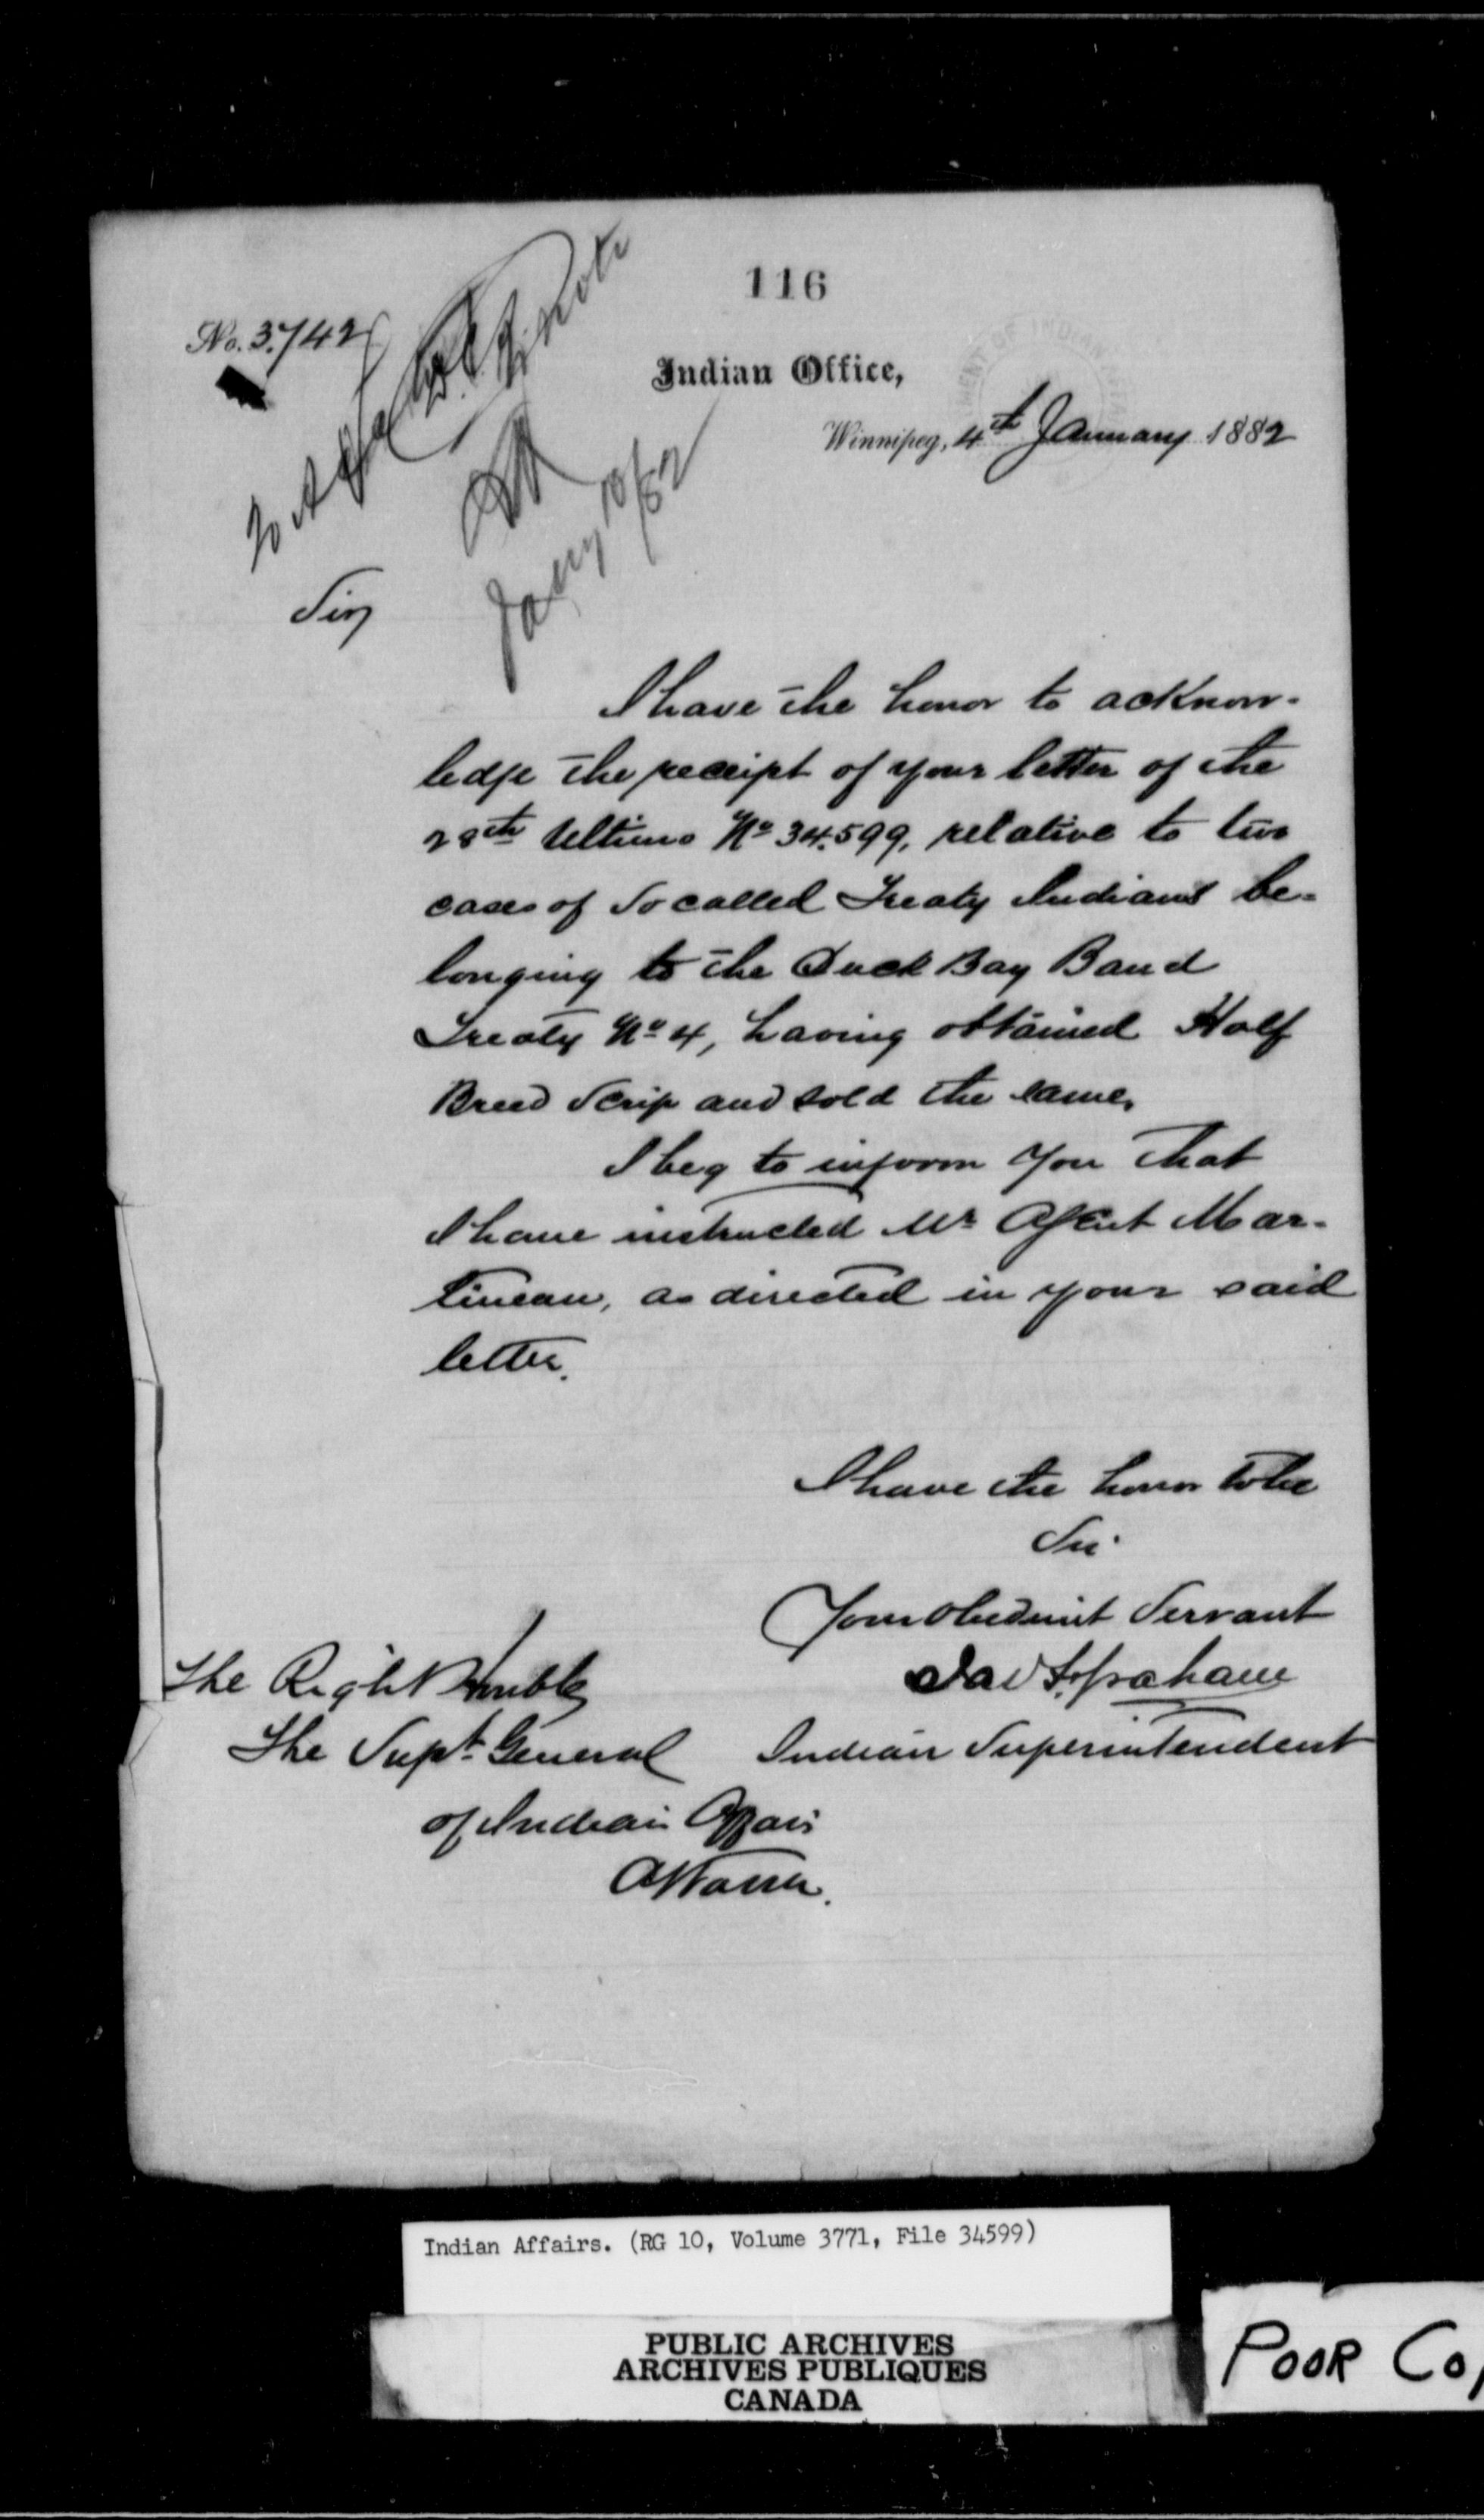 116
No. 3742
Indian Office,
Winnipeg, 4th January 1882
Jany 10/82
Sir
I have the honor to acknow-
ledge the receipt of your letter of the
28th Ultimo No 34.599, relative to two
cases of So called Treaty Indians be-
longing to the Duck Bay Band
Treaty No 4, having obtained Half
Breed Scrip and sold the same.
I beg to inform you that
I have instructed Mr Agent Mar-
tineau, as directed in your said
letter.
I have the honor to be
Sir
Your obedient Servant
Indian Superintendent
The Right Honble
The Supt General
of Indian Affairs
Ottawa.
Indian Affairs. (RG 10, Volume 3771, File 34599)
PUBLIC ARCHIVES
ARCHIVES PUBLIQUES
CANADA
POOR Cop